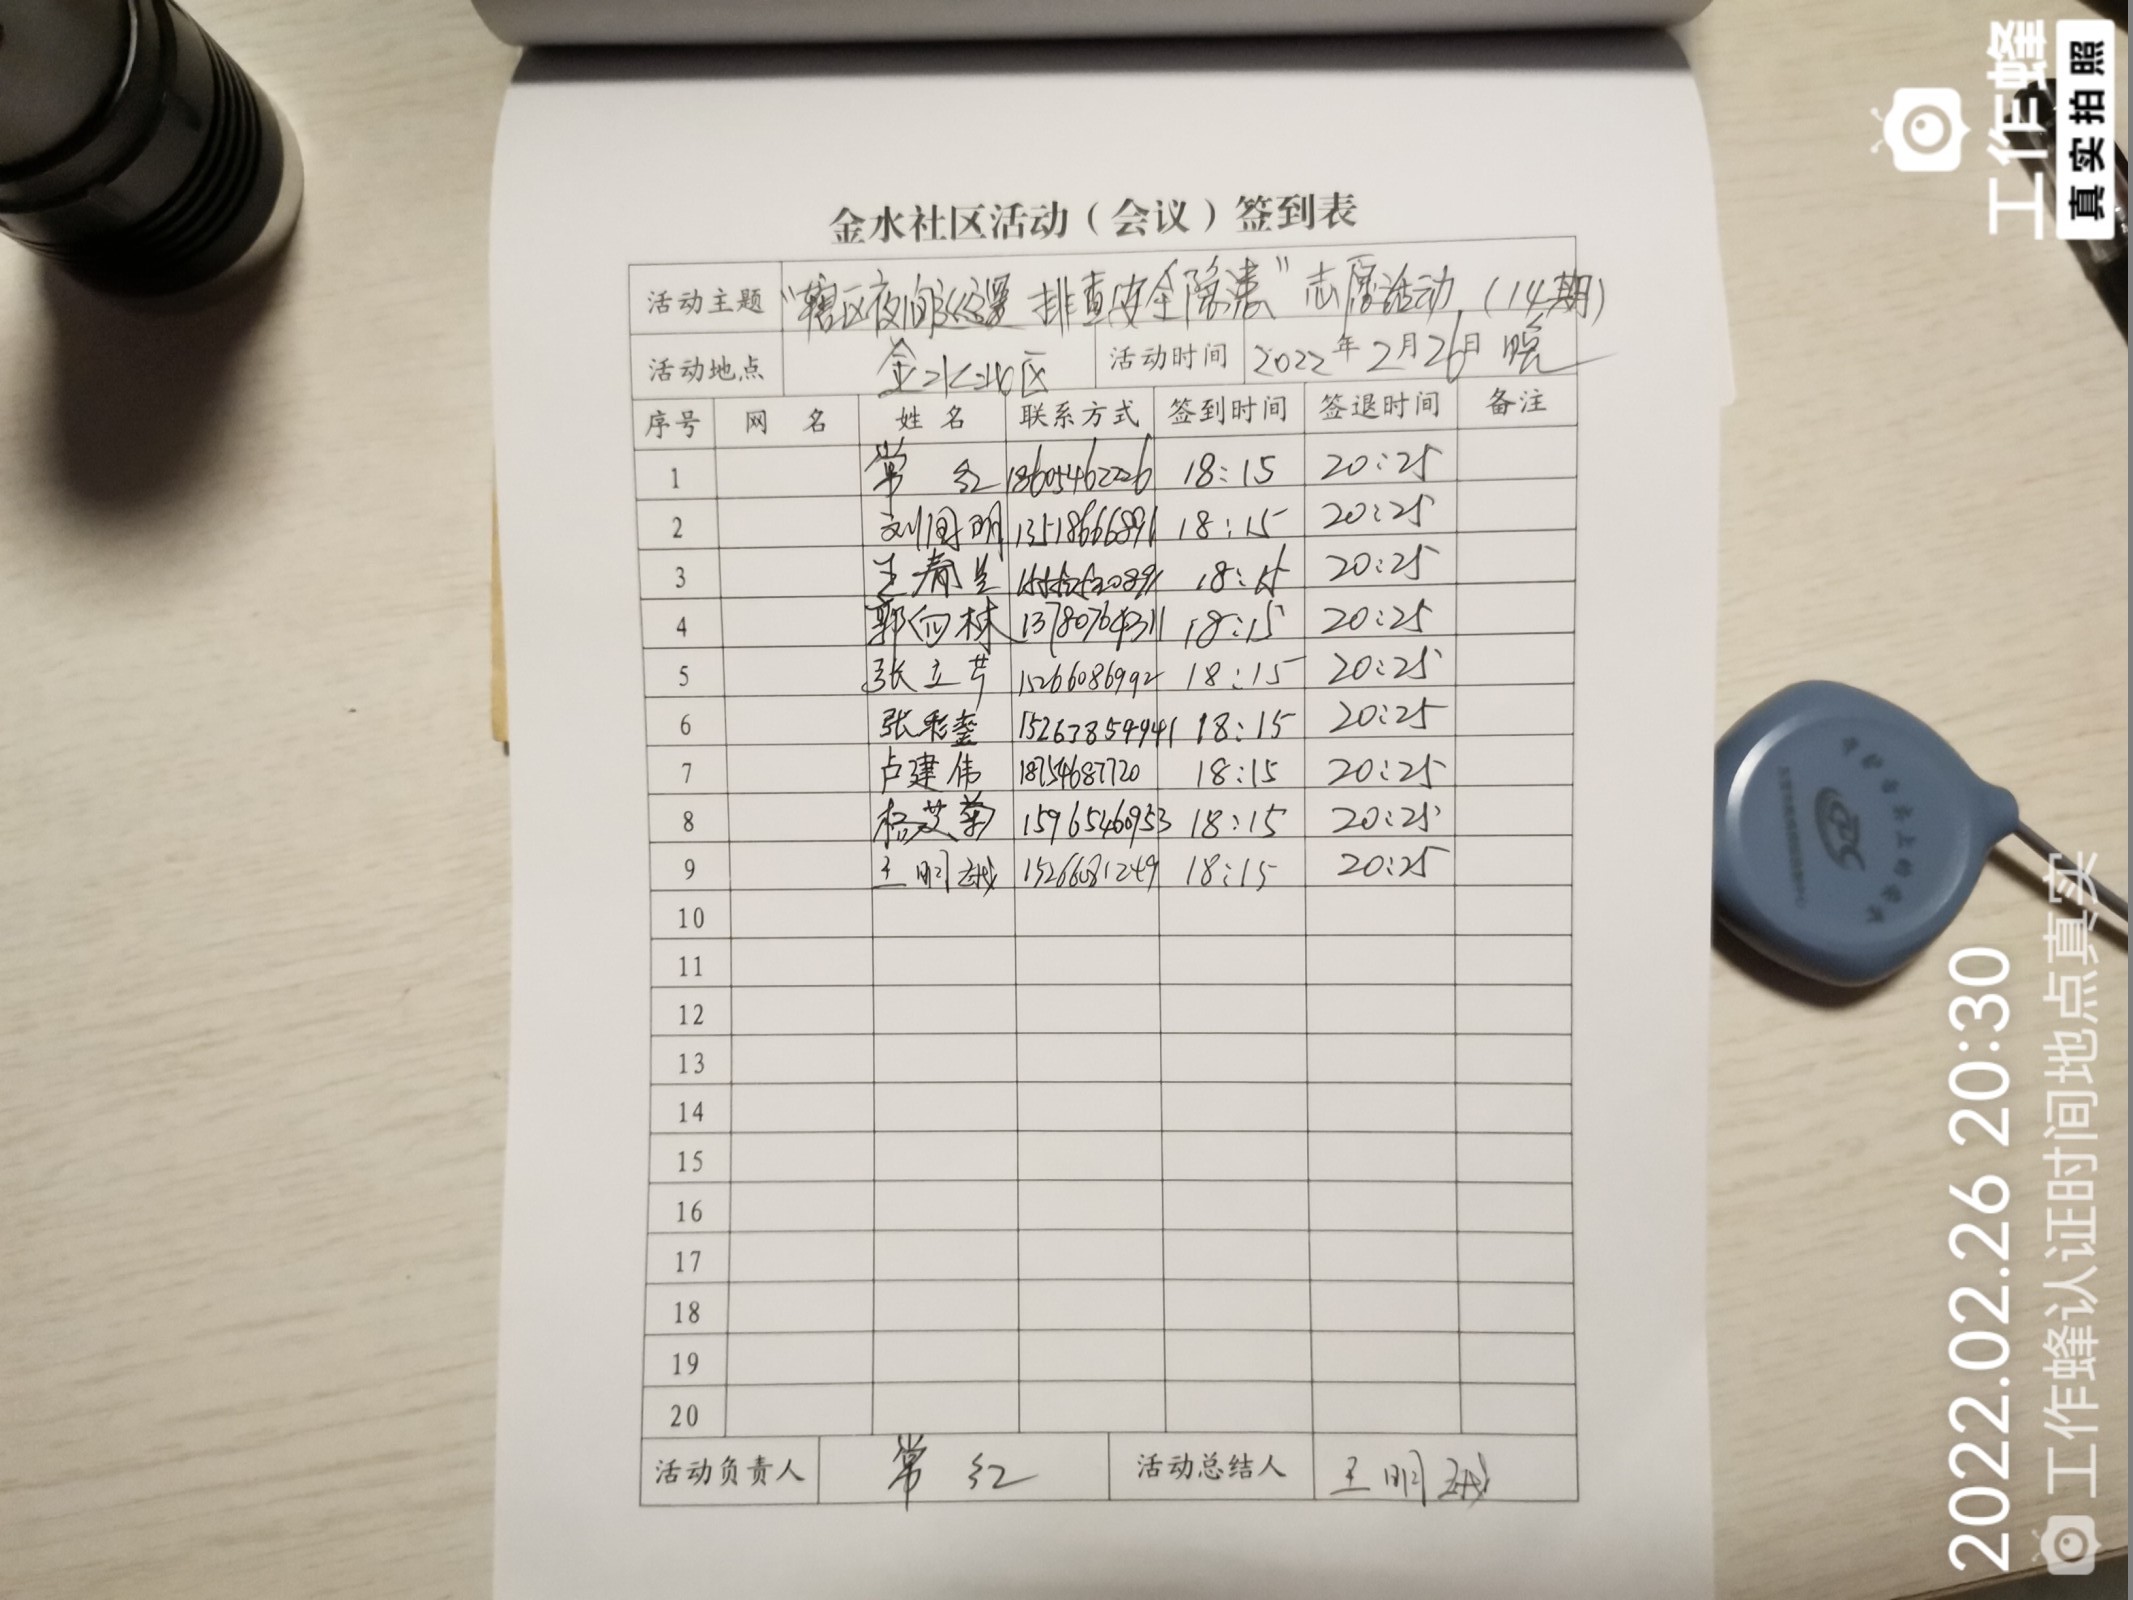 金水社区活动（会议）签到表
活动主题 “辖区夜间巡逻 排查安全隐患”志愿活动（14期）
活动地点 金水社区 活动时间 2022年2月26日 晚
序号 网名 姓名 联系方式 签到时间 签退时间 备注
1 常红 18605462226 18:15 20:25
2 刘国明 13518666891 18:15 20:25
3 王春兰 18:15 20:25
4 郭向林 13780764311 18:15 20:25
5 张立芹 15266086992 18:15 20:25
6 张彩銮 15263859441 18:15 20:25
7 卢建伟 18754687720 18:15 20:25
8 杨艾菊 15965460953 18:15 20:25
9 王明 15266081249 18:15 20:25
10
11
12
13
14
15
16
17
18
19
20
活动负责人 常红 活动总结人 王明
工作蜂
真实拍照
2022.02.26 20:30
工作蜂认证时间地点真实